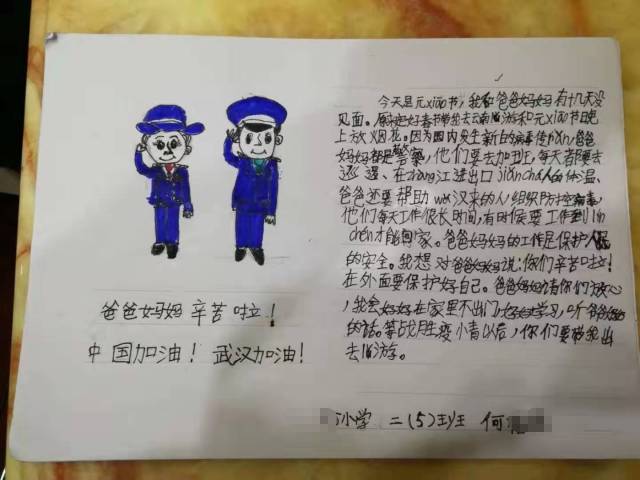 爸爸妈妈 辛苦啦！
中国加油！武汉加油！
今天是元xiāo节，我和爸爸妈妈有十几天没
见面。原定好春节带我去云南lǚ游和元xiāo节晚
上放烟花。因为国内发生新日病毒传rǎn，爸爸
妈妈都是警察，他们要去加班，每天都要去
巡逻、在zhàng江进出口jiǎnchá人的体温，
爸爸还要帮助wǔ汉来的人组织防控病毒，
他们每天工作很长时间，有时候要工作到lín
chén才能回家。爸爸妈妈的工作是保护人民
的安全。我想对爸爸妈妈说：你们辛苦啦！
在外面要保护好自己。爸爸妈妈请你们放心
，我会好好在家里不出门，好好学习，听爸爸妈妈
的话。等战胜病毒以后，你们要带我出
去lǚ游。
小学 二（5）班 何